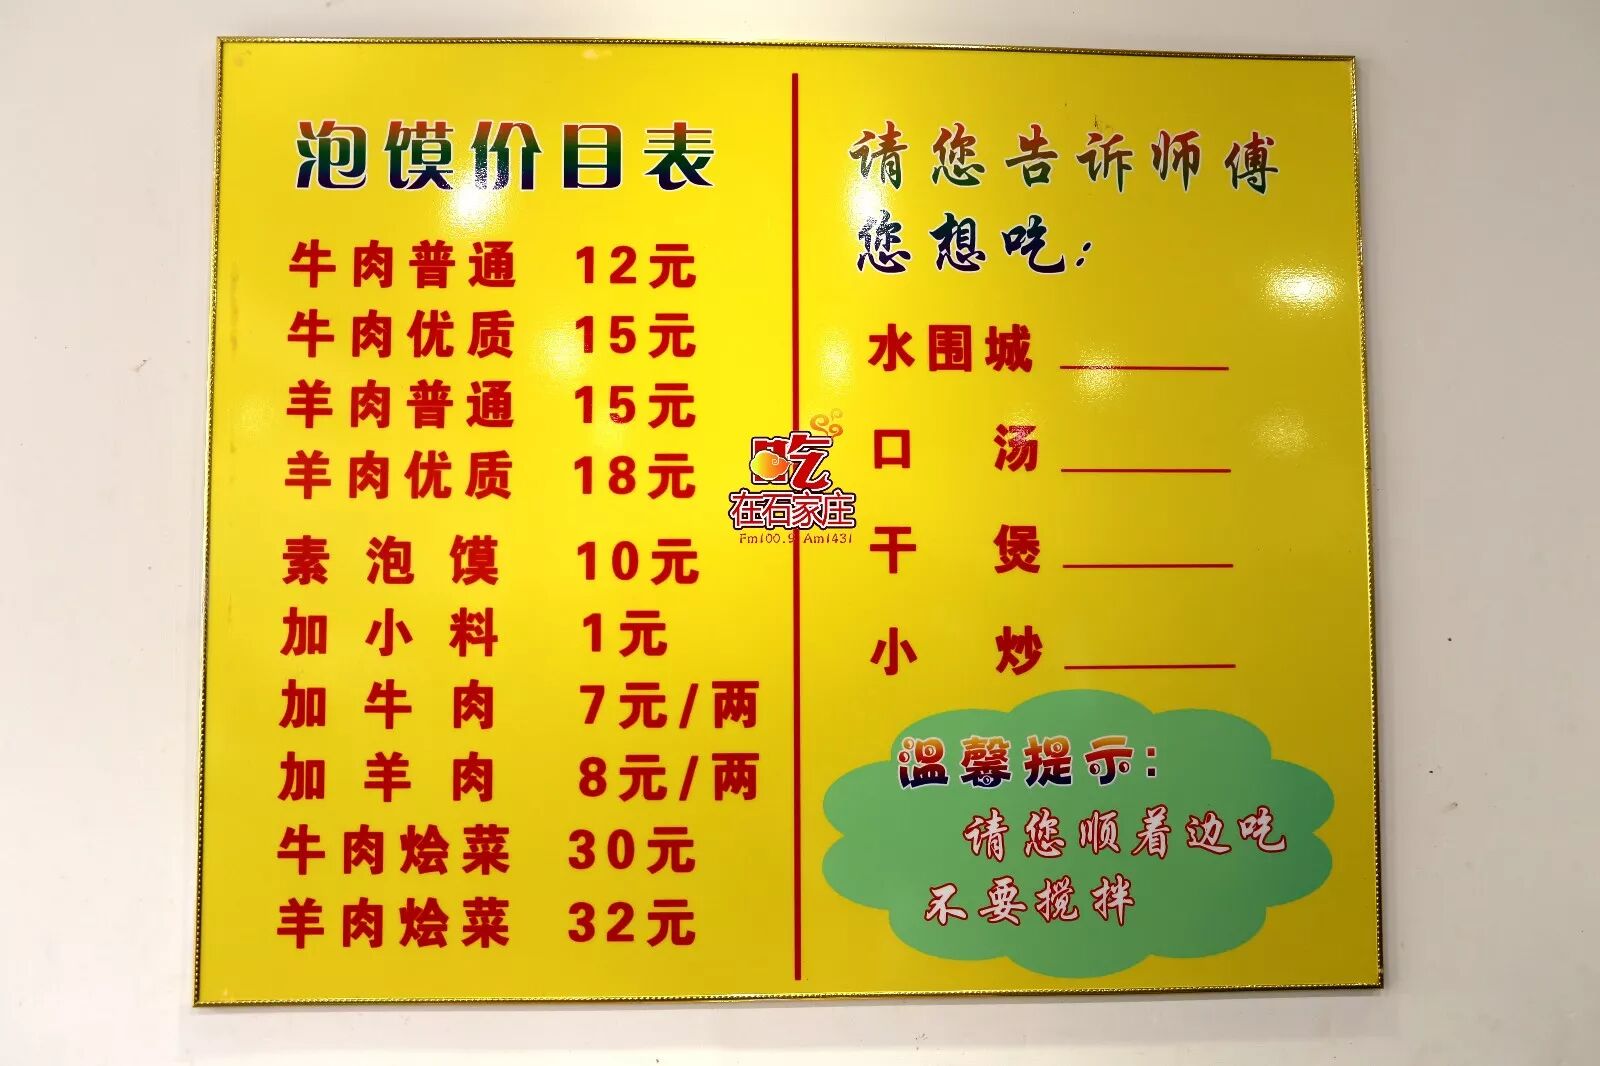 泡馍价目表
牛肉普通 12元
牛肉优质 15元
羊肉普通 15元
羊肉优质 18元
素泡馍 10元
加小料 1元
加牛肉 7元/两
加羊肉 8元/两
牛肉烩菜 30元
羊肉烩菜 32元
吃
在石家庄
Fm100.9 Am1431
请您告诉师傅
您想吃：
水围城
口汤
干煲
小炒
温馨提示：
请您顺着边吃
不要搅拌